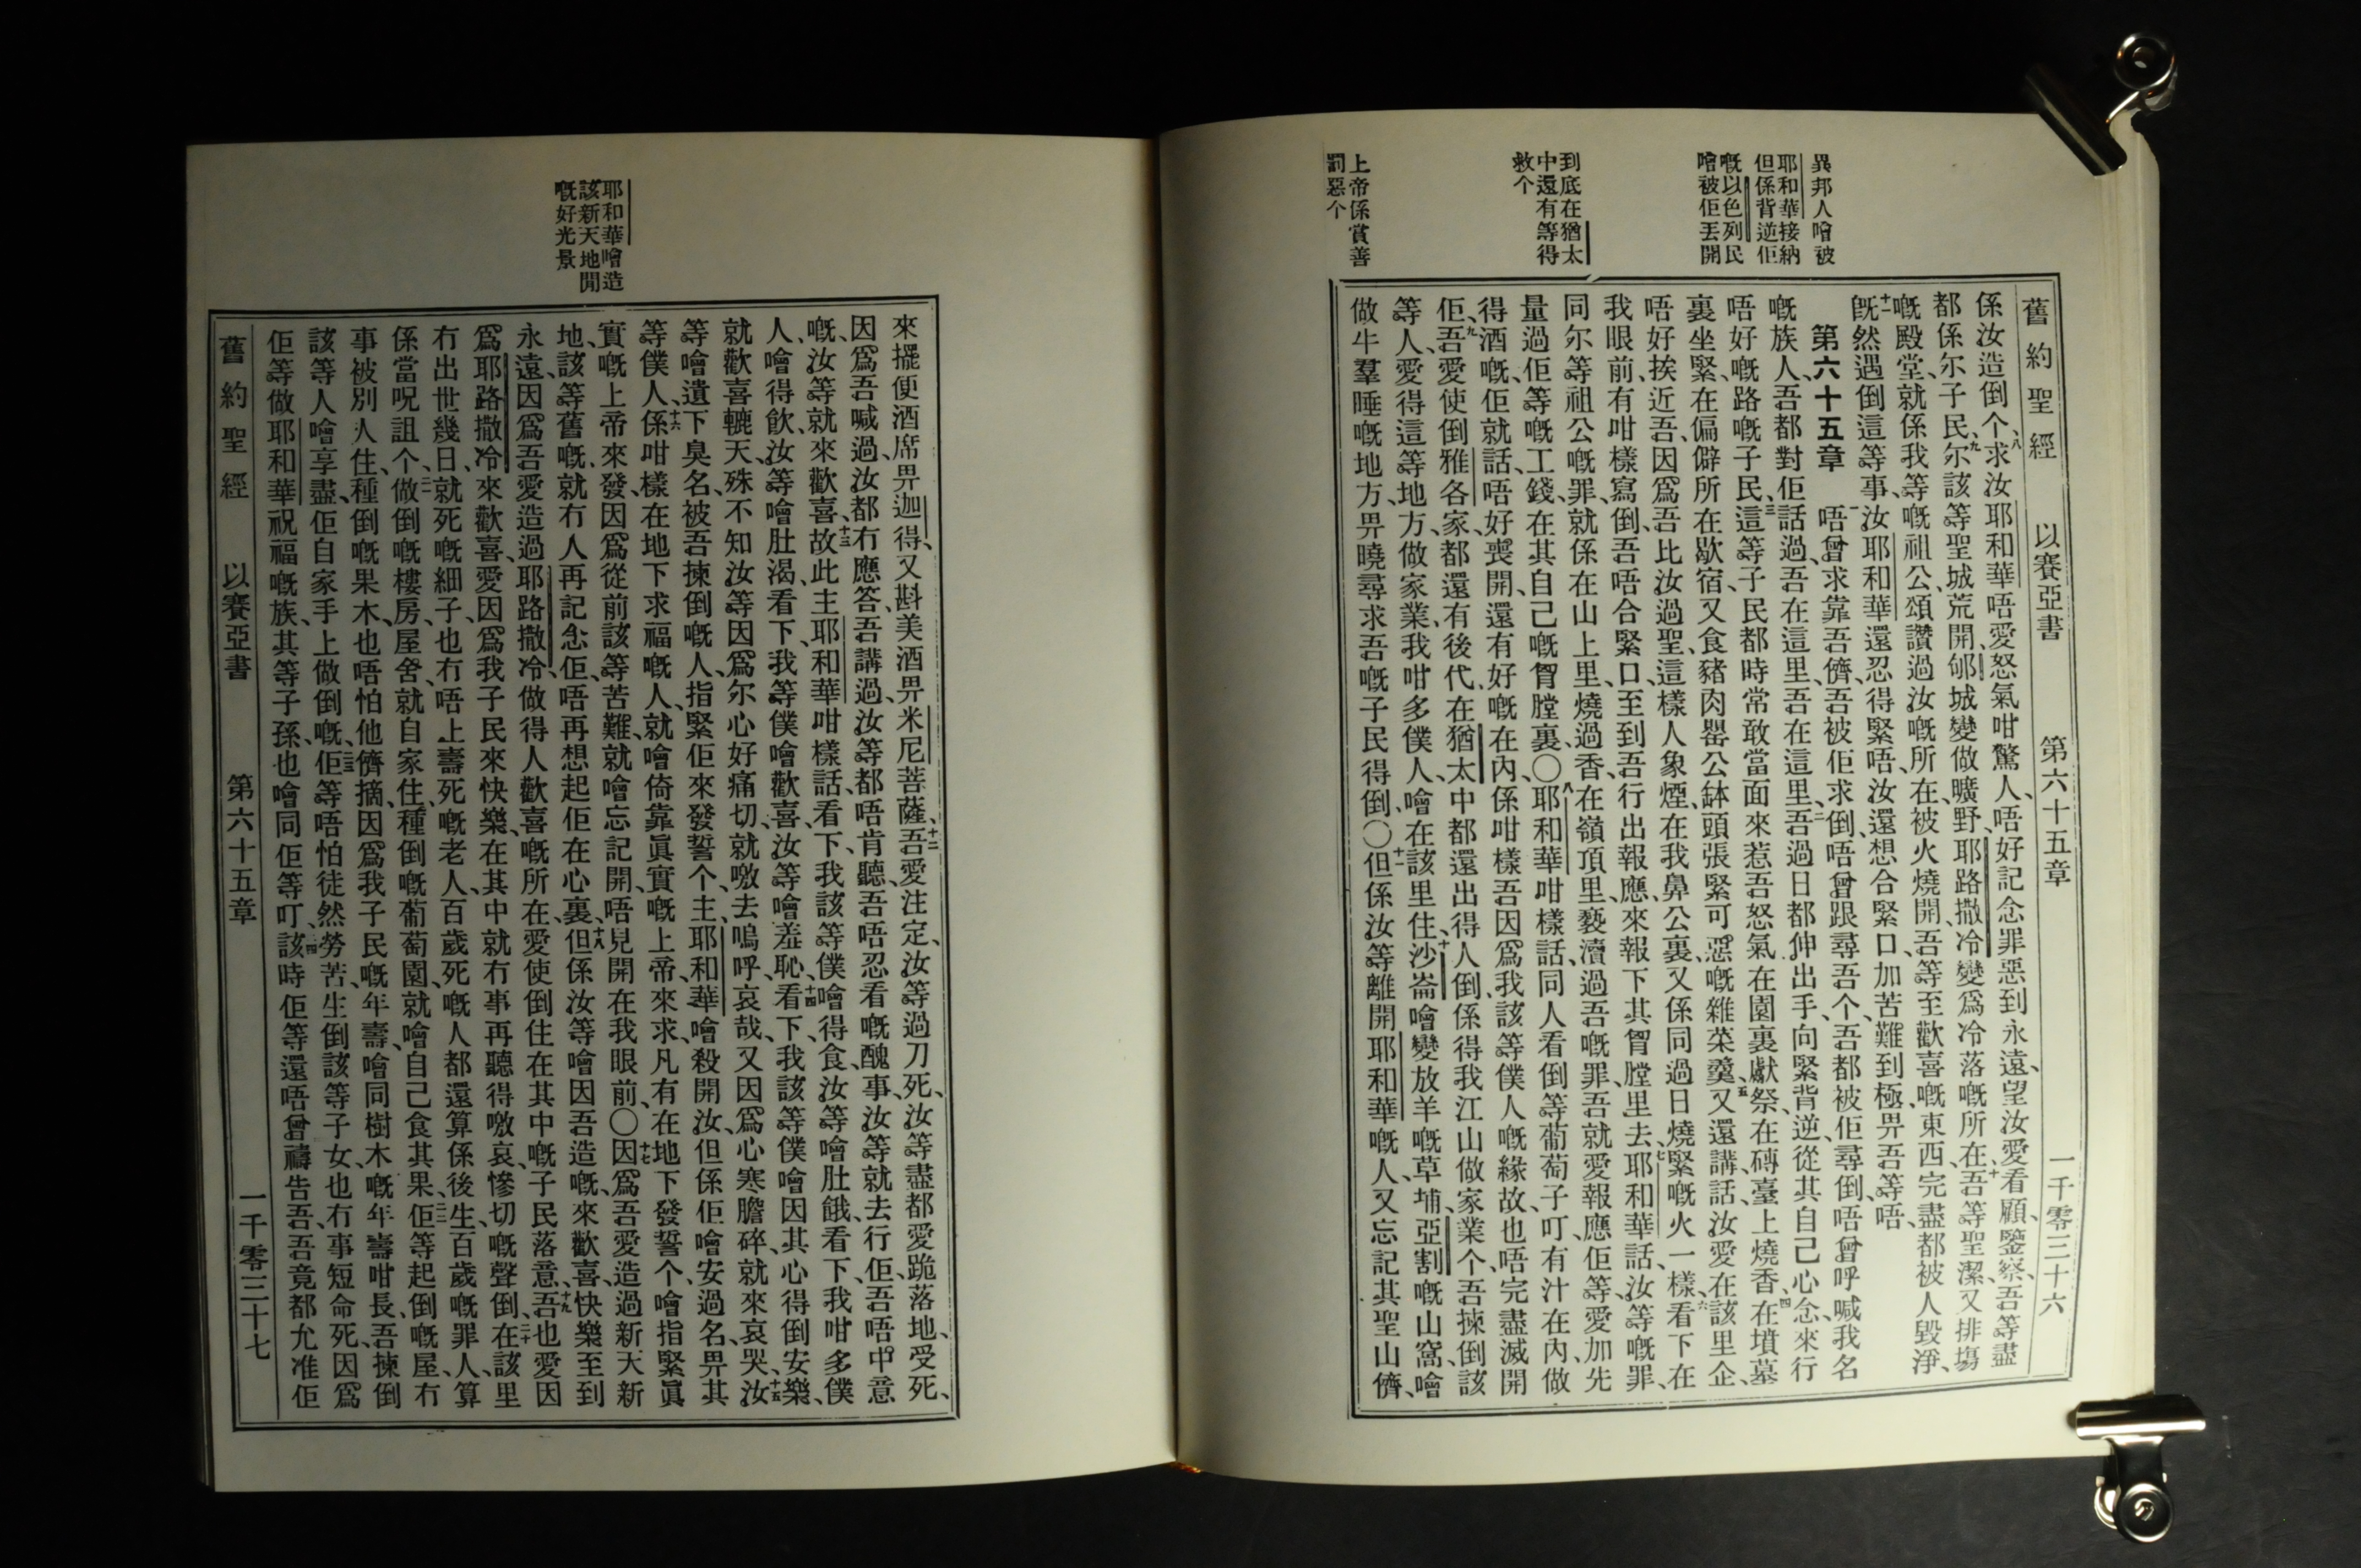 異邦人噲被
耶和華接納
但係背逆佢
嘅以色列民
噲被佢丟開
到底在猶太
中還有等得
救个
上帝係賞善
罰惡个
舊約聖經 以賽亞書 第六十五章 一千零三十六
係汝造倒个、八求汝耶和華唔愛怒氣咁驚人、唔好記念罪惡到永遠、望汝愛看顧、鑒察、吾等盡
都係尔子民、九尔該等聖城荒開、郇城變做曠野、耶路撒冷變爲冷落嘅所在、十吾等聖潔又排塲
嘅殿堂、就係我等嘅祖公頌讚過汝嘅所在、被火燒開、吾等至歡喜嘅東西、完盡都被人毀淨、
十二旣然遇倒這等事、汝耶和華還忍得緊唔、汝還想合緊口、加苦難到極畀吾等唔、
第六十五章 一唔曾求靠吾儕、吾被佢求倒、唔曾跟尋吾个、吾都被佢尋倒、唔曾呼喊我名
嘅族人、吾都對佢話過、吾在這里、吾在這里、二吾過日都伸出手、向緊背逆、從其自己心念來行
唔好嘅路嘅子民、三這等子民、都時常敢當面來惹吾怒氣、在園裏獻祭、在磚臺上燒香、四在墳墓
裏坐緊、在偏僻所在歇宿、又食豬肉、罌公缽頭張緊可惡嘅雜菜羹、五又還講話、汝愛在該里企、
唔好挨近吾、因爲吾比汝過聖、這樣人象煙、在我鼻公裏、又係同過日燒緊嘅火一樣、六看下、在
我眼前、有咁樣寫倒、吾唔合緊口、至到吾行出報應、來報下其胷膛里去、七耶和華話、汝等嘅罪、
同尔等祖公嘅罪、就係在山上里、燒過香、在嶺頂里、褻瀆過吾嘅罪、吾就愛報應佢等、愛加先
量過佢等嘅工錢、在其自己嘅胷膛裏、〇八耶和華咁樣話、同人看倒等葡萄子叮、有汁在內、做
得酒嘅、佢就話、唔好喪開、還有好嘅在內、係咁樣吾因爲我該等僕人嘅緣故、也唔完盡滅開
佢、九吾愛使倒雅各家、都還有後代、在猶太中都還出得人倒、係得我江山做家業个、吾揀倒該
等人、愛得這等地方、做家業、我咁多僕人、噲在該里住、十沙崙噲變放羊嘅草埔、亞割嘅山窩、噲
做牛羣睡嘅地方、畀曉尋求吾嘅子民得倒、〇十一但係汝等離開耶和華嘅人、又忘記其聖山儕、
耶和華噲造
該新天地閒
嘅好光景
來擺便酒席畀迦得、又斟美酒畀米尼菩薩、十二吾愛注定、汝等過刀死、汝等盡都愛跪落地、受死、
因爲吾喊過、汝都冇應答、吾講過、汝等都唔肯聽、吾唔忍看嘅醜事、汝等就去行佢、吾唔中意
嘅、汝等就來歡喜、十三故此主耶和華咁樣話、看下、我該等僕噲得食、汝等噲肚餓、看下、我咁多僕
人、噲得飮、汝等噲肚渴、看下、我等僕噲歡喜、汝等噲羞恥、十四看下、我該等僕噲因其心得倒安樂、
就歡喜轆天、殊不知汝等因爲尔心好痛切、就噭去嗚呼哀哉、又因爲心寒膽碎、就來哀哭、十五汝
等噲遺下臭名、被吾揀倒嘅人、指緊佢來發誓个、主耶和華噲殺開汝、但係佢噲安過名、畀其
等僕人、十六係咁樣在地下求福嘅人、就噲倚靠眞實嘅上帝來求、凡有在地下發誓个、噲指緊眞
實嘅上帝來發、因爲從前該等苦難、就噲忘記開、唔見開在我眼前、〇十七因爲吾愛造過新天新
地、該等舊嘅就冇人再記念佢、唔再想起佢在心裏、十八但係汝等噲因吾造嘅來歡喜、快樂至到
永遠、因爲吾愛造過耶路撒冷、做得人歡喜嘅所在、愛使倒住在其中嘅子民落意、十九吾也愛因
爲耶路撒冷來歡喜、愛因爲我子民來快樂、在其中就冇事再聽得噭哀慘切嘅聲倒、二十在該里
冇出世幾日、就死嘅細子、也冇唔上壽死嘅老人、百歲死嘅人、都還算係後生、百歲嘅罪人、算
係當呪詛个、二一做倒嘅樓房屋舍、就自家住、種倒嘅葡萄園、就噲自己食其果、二二佢等起倒嘅屋、冇
事被別人住、種倒嘅果木、也唔怕他儕摘、因爲我子民嘅年壽、噲同樹木嘅年壽咁長、吾揀倒
該等人、噲享盡佢自家手上做倒嘅、二三佢等唔怕徒然勞苦、生倒該等子女、也冇事短命死、因爲
佢等做耶和華祝福嘅族、其等子孫、也噲同佢等叮、二四該時佢等還唔曾禱告吾、吾竟都允准佢
舊約聖經 以賽亞書 第六十五章 一千零三十七